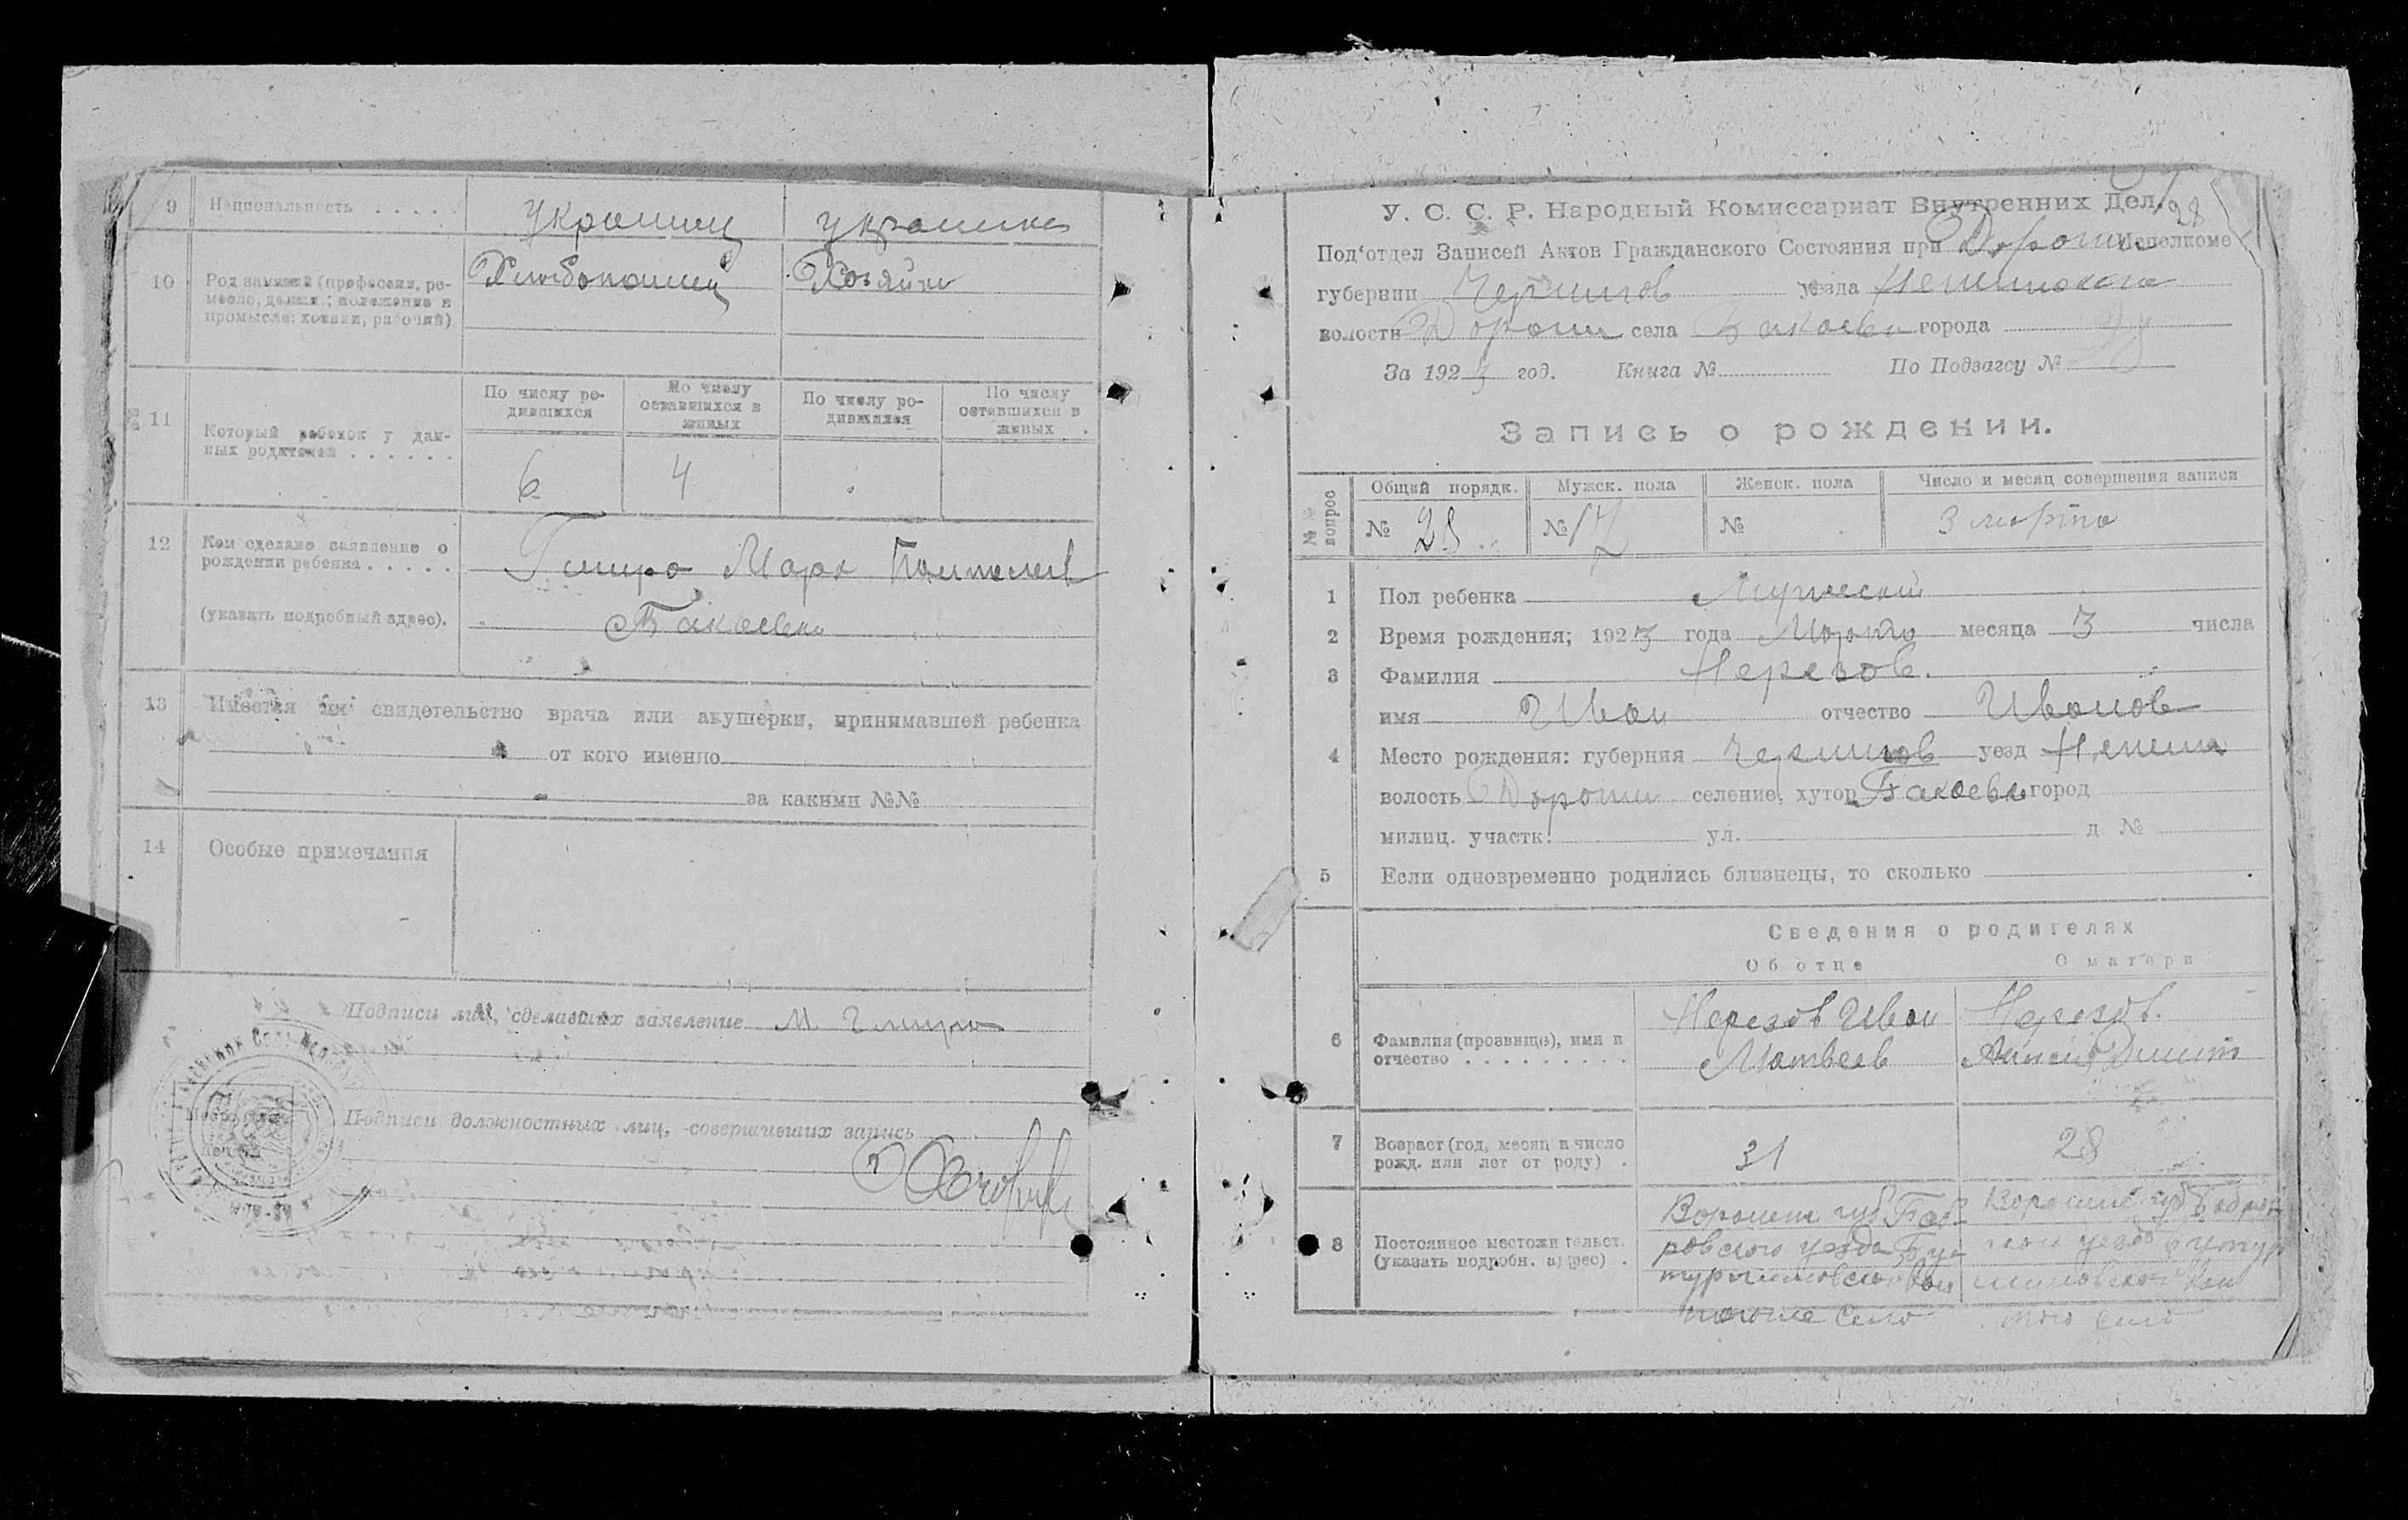 9 Национальность . . . . .
Украинец
украинка
10 Род занятий (професс��я, ре-
месло, должн.; положение в
промысле: хозяин, рабочий)
Хлебопашец
Хозяйка
11 Который ребенок у дан-
ных родителей . . . . . .
По числу ро-
дившихся
По числу
оставшихся в
живых
По числу ро-
дившихся
По числу
оставшихся в
живых
6
4
12 Кем сделано заявление о
рождении ребенка . . . . .
(указать подробный адрес).
Марк
Бакаевка
13 Имеется ли свидетельство врача или акушерки, принимавшей ребенка
от кого именно
за какими №№
14 Особые примечания
Подписи лиц, сделавших заявление М.
Подписи должностных лиц, совершивших запись
У. С. С. Р. Народный Комиссариат Внутренних Дел.
28
Под'отдел Записей Актов Гражданского Состояния при Дорогин Исполкоме
губернии Чернигов уезда
волости Дорогин села Бакаевки города
За 1923 год. Книга № По Подзагсу № 28
Запись о рождении.
№№ вопрос
Общий порядк. Мужск. пола Женск. пола Число и месяц совершения записи
№ 28 № 17 № 3 марта
1 Пол ребенка Мужеский
2 Время рождения; 1923 года Марта месяца 3 числа
3 Фамилия Нерезов.
имя Иван отчество Иванов
4 Место рождения: губерния Чернигов уезд Нежин
волость Дорогин селение, хутор Бакаевка город
милиц. участк. ул. д №
5 Если одновременно родились близнецы, то сколько
Сведения о родителях
Об отце О матери
6 Фамилия (прозвище), имя и
отчество . . . . . . . . .
Нерезов Иван
Матвеев
Нерезов.
Дмит
7 Возраст (год, месяц и число
рожд. или лет от роду) .
31
28
8 Постоянное местожительст.
(указать подробн. адрес) .
Воронеж губ Боб-
ровского уезда Бу-
турлиновской вол
того же село
Воронеж губ Бобров-
ского уезда Бутур
линовской вол
того село